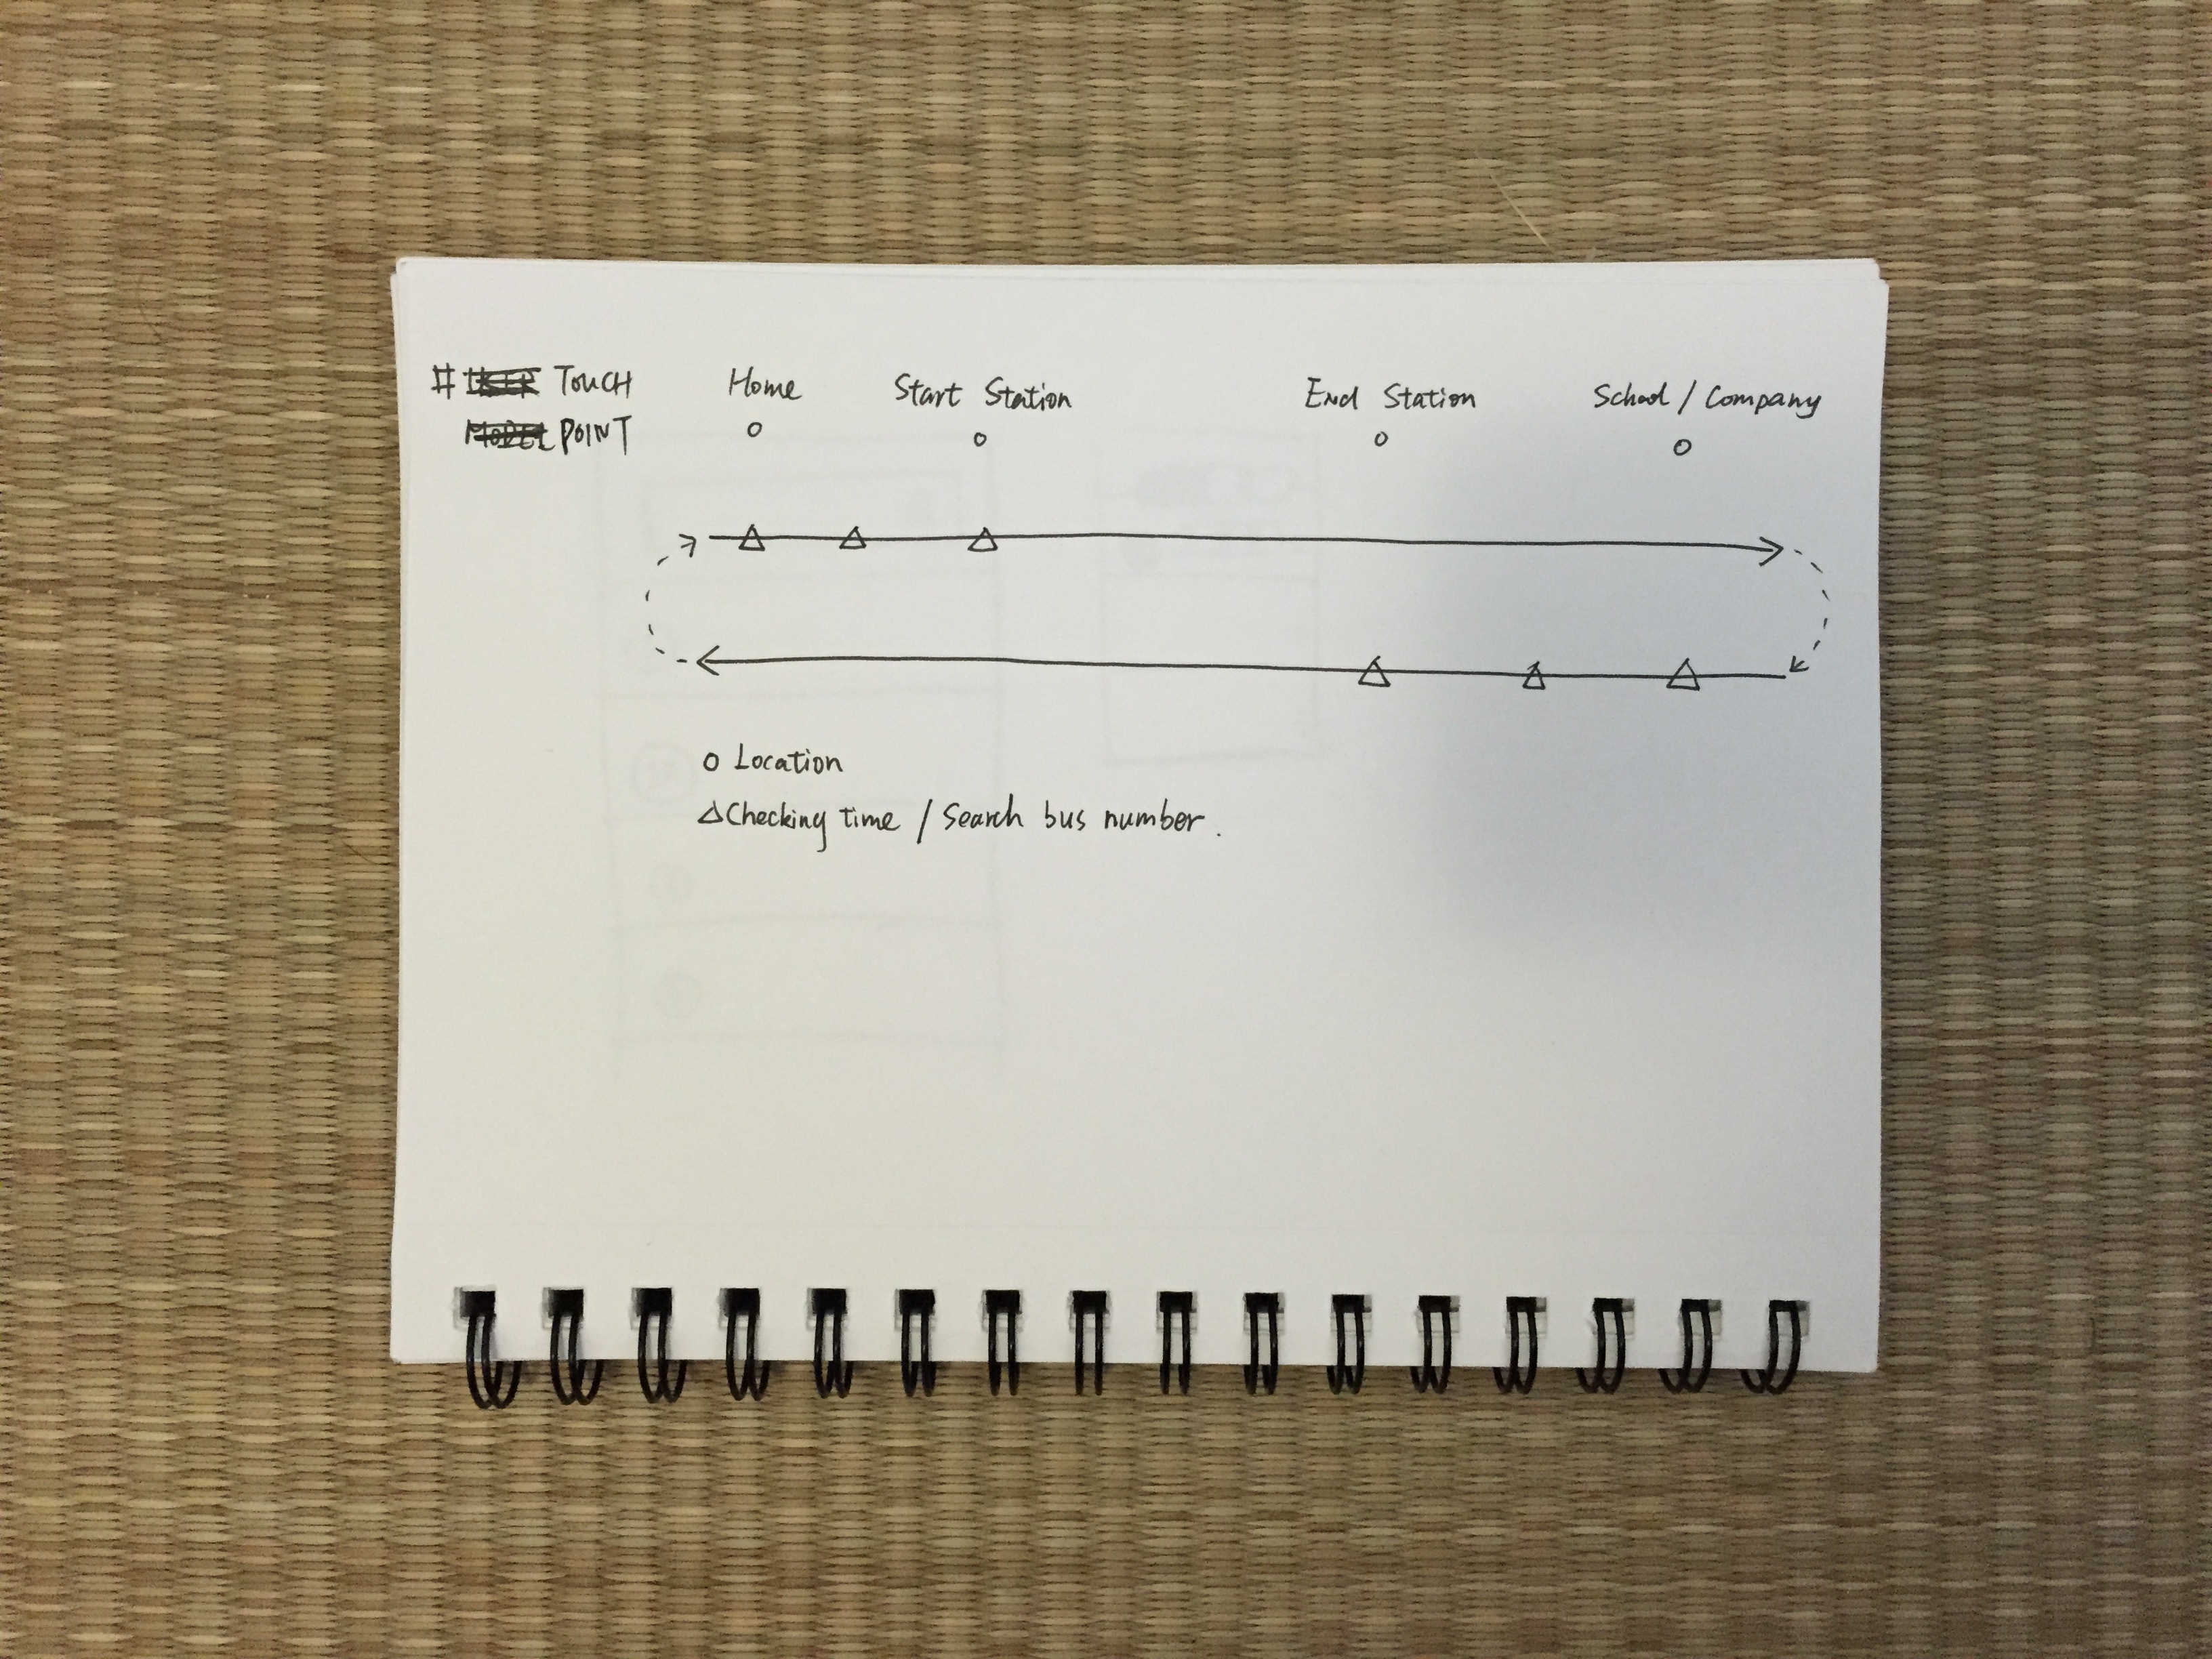 # TOUCH
POINT
Home
Start Station
End Station
School / Company
Location
Checking time / Search bus number.